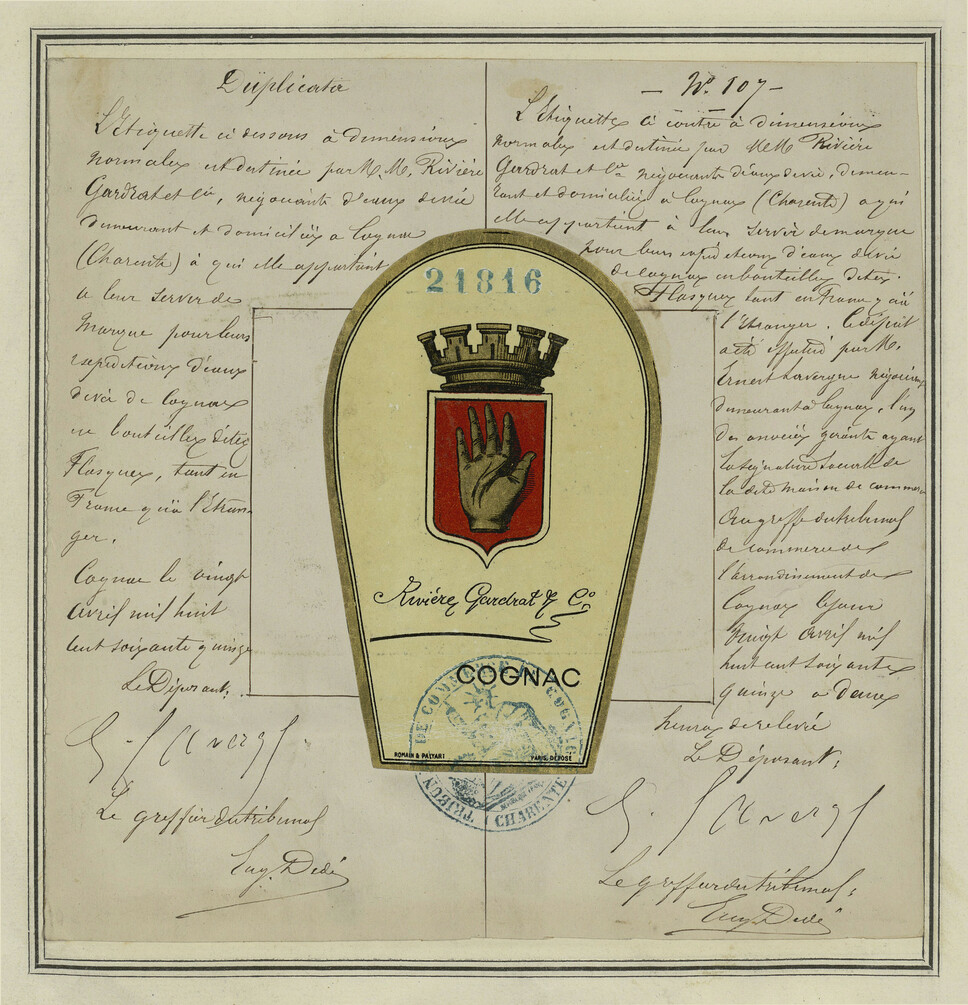 Duplicata
L'Etiquette ci dessous à demensions
normales est destinée par M.M. Rivière
Gardrat et Cie, négociants d'eaux de vie
demeurant et domiciliés a Cognac
(Charente) à qui elle appartient
a leur servir de
marque pour leurs
expeditions d'eaux
de vie de Cognac
en bouteilles dites
Flasques, tant en
France qu'à l'Etran-
ger.
Cognac le vingt
avril mil huit
cent soixante quinze
Le Déposant:
E. Lavergne
Le greffier du tribunal
Eug. Dedé
— No. 107 —
L'Etiquette ci contre à dimensions
normales est destinée par MM Rivière
Gardrat et Cie négociants d'eaux de vie, demeu-
rant et domiciliés à Cognac (Charente) a qui
elle appartient à leur servir de marque
pour leurs expéditions d'eaux de vie
de Cognac en bouteilles dites
Flasques tant en France qu'à
l'Etranger. Le dépôt
a été effectué par M.
Ernest Lavergne négociant
demeurant à Cognac, l'un
des associés gérants ayant
la signature sociale de
la dite maison de commerce
au greffe du tribunal
de commerce de
l'arrondissement de
Cognac ce jour
vingt avril mil
huit cent soixante
quinze à deux
heures de relevée
Le Déposant:
E. Lavergne
Le greffier du tribunal:
Eug. Dedé
21816
Rivière Gardrat & Co
COGNAC
ROMAIN & PALYART
PARIS. DÉPOSÉ
TRIBUNAL DE COMMERCE DE COGNAC
(CHARENTE)